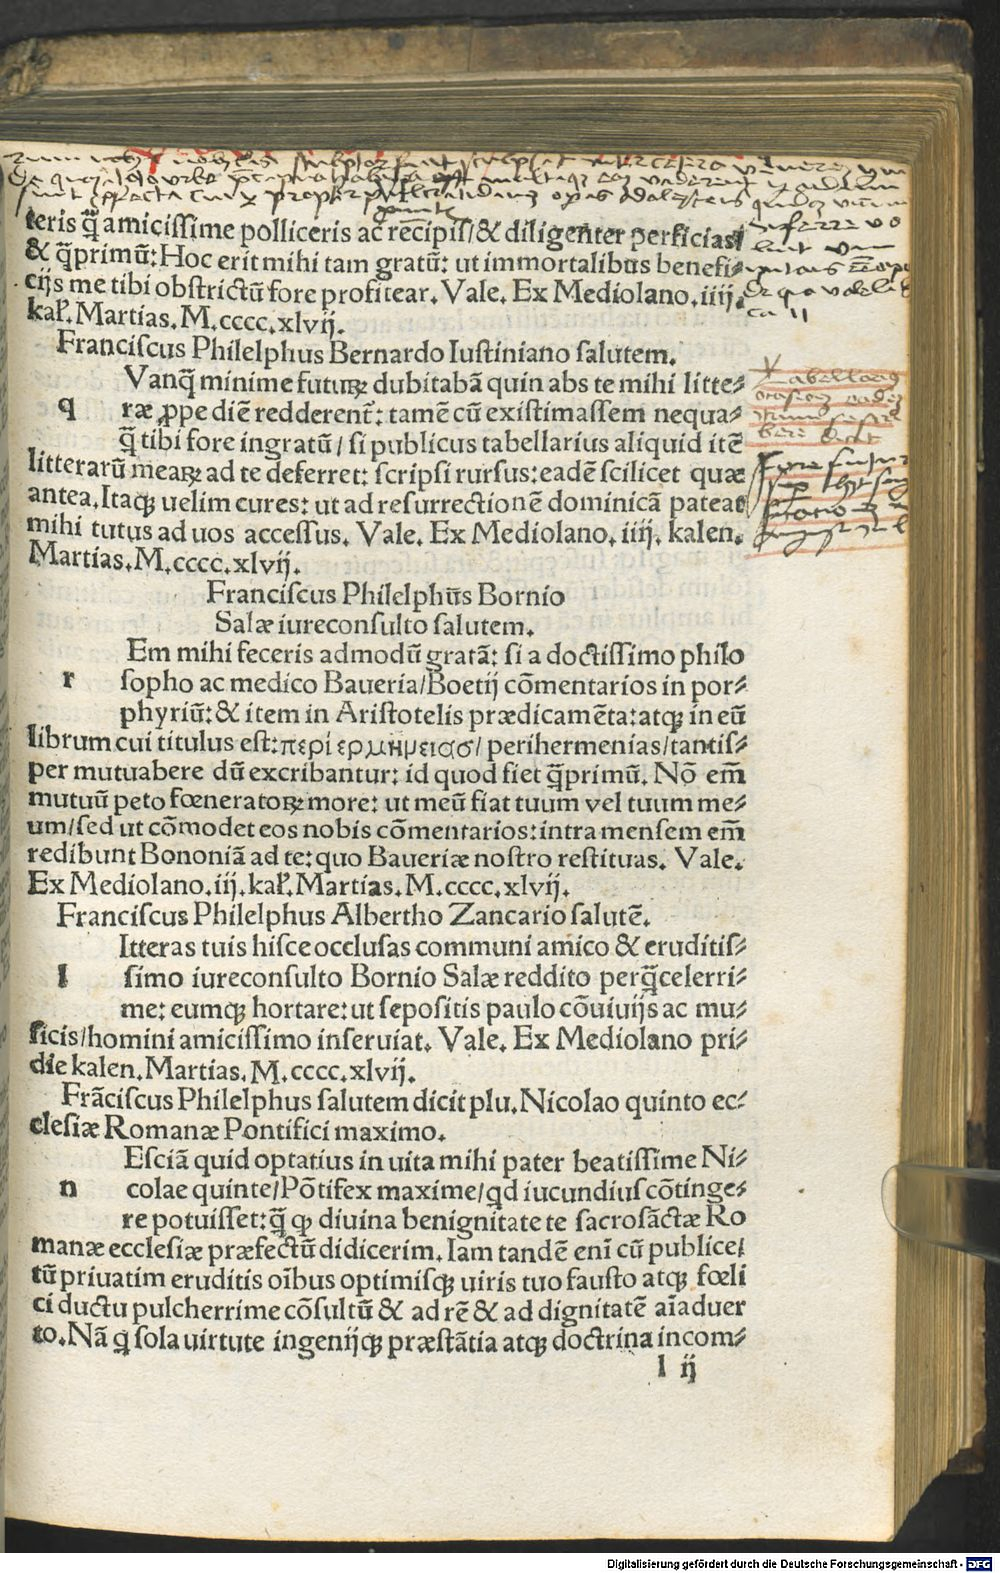 teris q̃ amicissime polliceris ac recipis/& diligenter perficias/
& q̃primũ: Hoc erit mihi tam gratũ: ut immortalibus benefi⸗
cijs me tibi obstrictũ fore profitear. Vale. Ex Mediolano. iiij.
kał. Martias. M.cccc.xlvij.
Franciscus Philelphus Bernardo Iustiniano salutem.
Vanq̃ minime futuꝝ dubitabã quin abs te mihi litte⸗
q ræ ꝓpe diẽ redderent᷑: tamẽ cũ existimassem nequa⸗
q̃ tibi fore ingratũ/ si publicus tabellarius aliquid itẽ
litterarũ meaꝝ ad te deferret: scripsi rursus: eadẽ scilicet quæ
antea. Itaqꝫ uelim cures: ut ad resurrectionẽ dominicã pateat
mihi tutus ad uos accessus. Vale. Ex Mediolano. iiij. kalen.
Martias. M.cccc.xlvij.
Franciscus Philelphus Bornio
Salæ iureconsulto salutem.
Em mihi feceris admodũ gratã: si a doctissimo philo
r sopho ac medico Baueria/Boetij cõmentarios in por⸗
phyriũ: & item in Aristotelis prædicamẽta: atqꝫ in eũ
librum cui titulus est: περι ερμηνειασ/ perihermenias/tantis⸗
per mutuabere dũ excribantur: id quod fiet q̃primũ. Nõ em̃
mutuũ peto fœneratoꝝ more: ut meũ fiat tuum vel tuum me⸗
um/sed ut cõmodet eos nobis cõmentarios: intra mensem em̃
redibunt Bononiã ad te: quo Baueriæ nostro restituas. Vale.
Ex Mediolano. iij. kał. Martias. M.cccc.xlvij.
Franciscus Philelphus Albertho Zancario salutẽ.
Itteras tuis hisce occlusas communi amico & eruditis⸗
l simo iureconsulto Bornio Salæ reddito perq̃celerri⸗
me: eumqꝫ hortare: ut sepositis paulo cõuiuijs ac mu⸗
sicis/homini amicissimo inseruiat. Vale. Ex Mediolano pri⸗
die kalen. Martias. M.cccc.xlvij.
Frãciscus Philelphus salutem dicit plu. Nicolao quinto ec⸗
clesiæ Romanæ Pontifici maximo.
Esciã quid optatius in uita mihi pater beatissime Ni⸗
n colae quinte/Põtifex maxime/qd iucundius cõtinge⸗
re potuisset: q̃ qꝫ diuina benignitate te sacrosãctæ Ro
manæ ecclesiæ præfectũ didicerim. Iam tandẽ eni cũ publice/
tũ priuatim eruditis oĩbus optimisqꝫ uiris tuo fausto atqꝫ fœli
ci ductu pulcherrime cõsultũ & ad rẽ & ad dignitatẽ aĩaduer
to. Nã q sola uirtute ingenijqꝫ præstãtia atqꝫ doctrina incom⸗
l ij
Digitalisierung gefördert durch die Deutsche Forschungsgemeinschaft - DFG